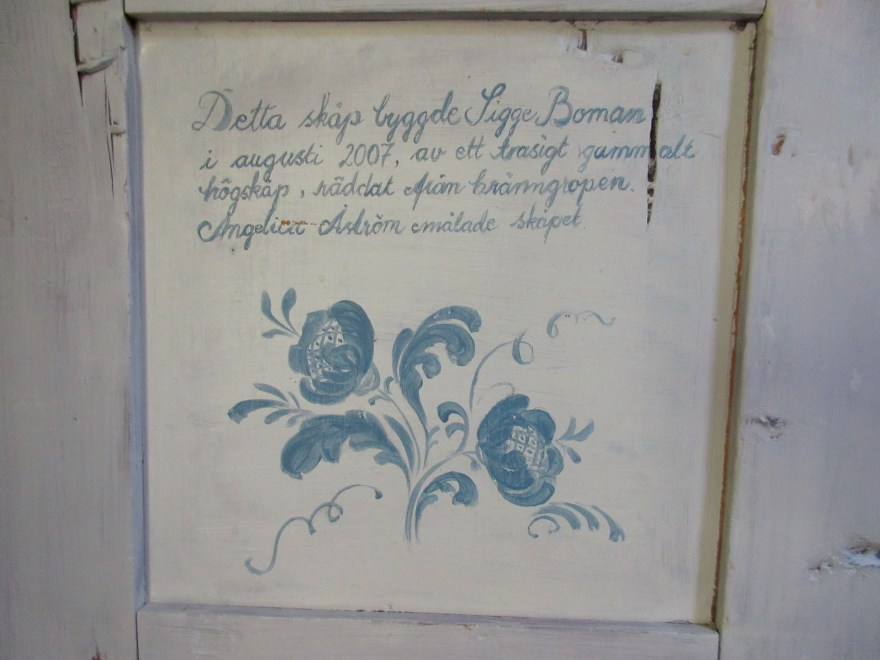 Detta skåp byggde Sigge Boman
i augusti 2007, av ett trasigt gammalt
högskåp, räddat från bränngropen.
Angelica Åström målade skåpet